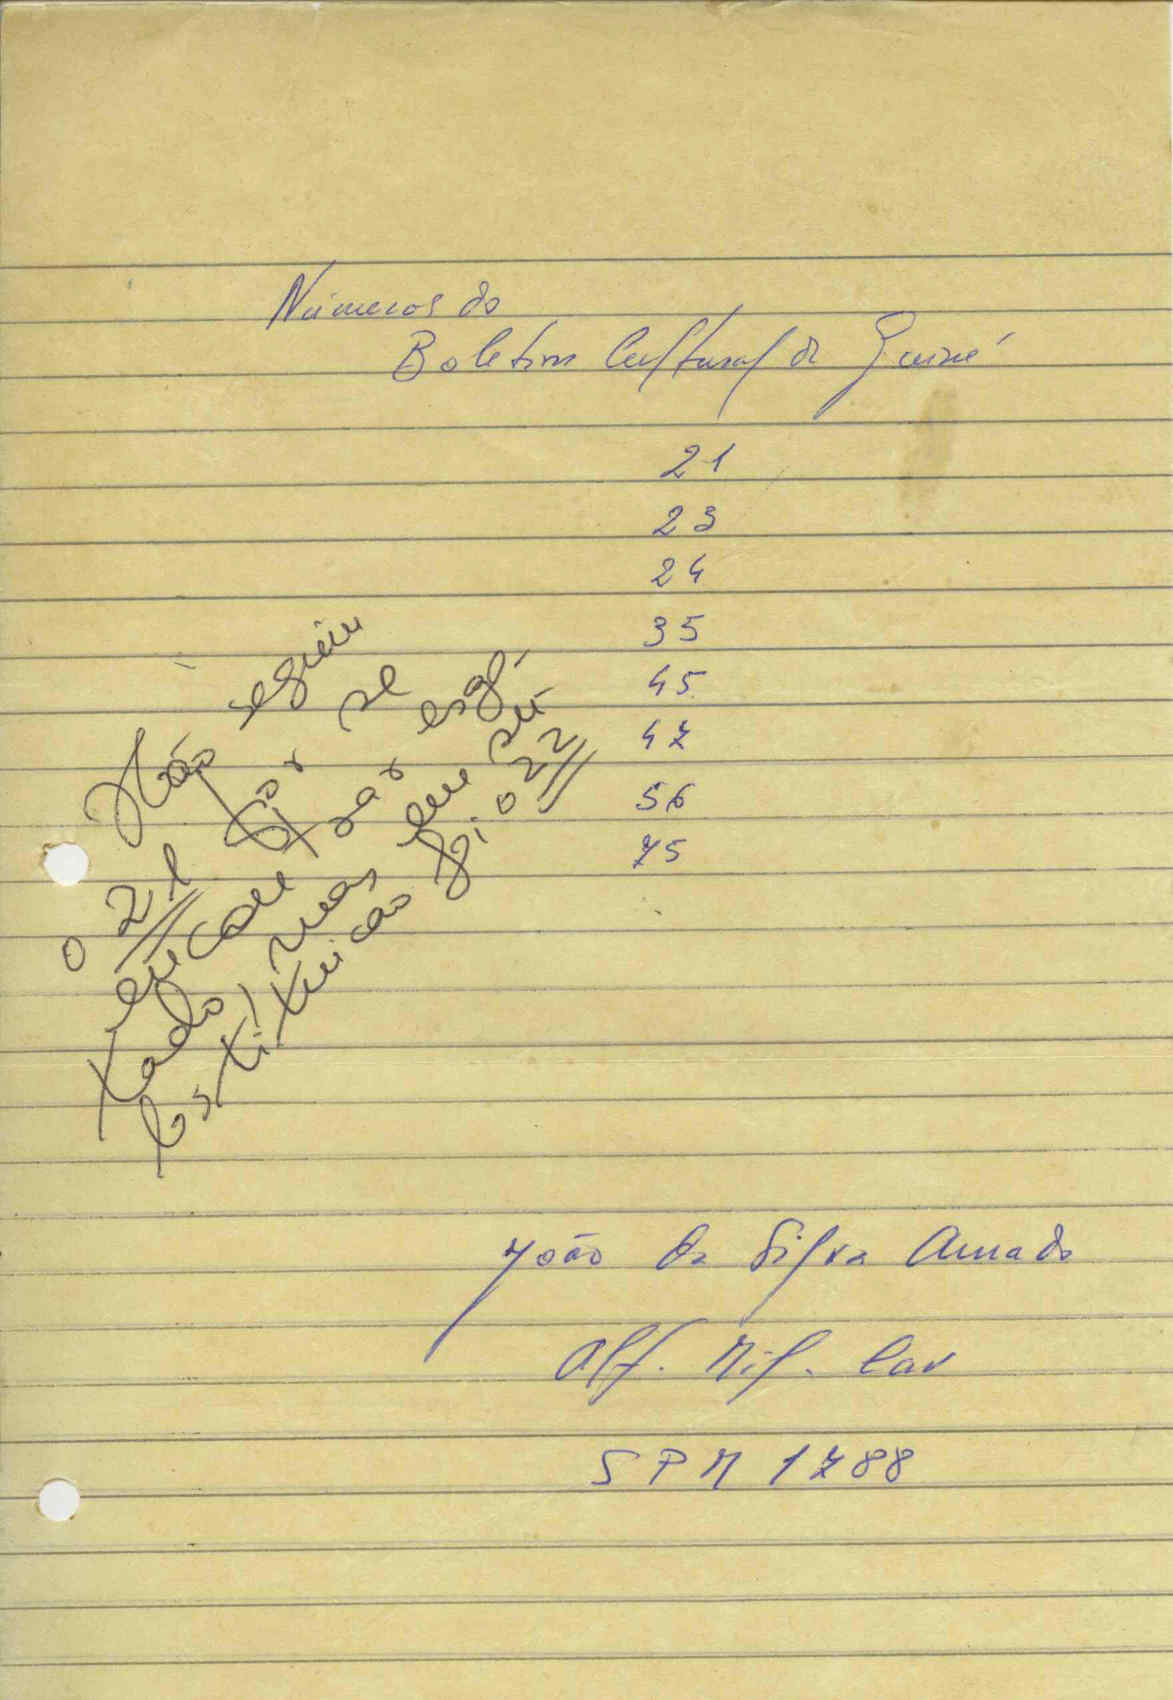 Números do
Boletim Cultural da Guiné
21
23
24
35
45
47
56
75
Não seguiu
o 21 por se
encontrar esgo-
tado, mas em su-
bstituicao foi o 22
João da Silva Amado
Alf. Mil. Cav
SPM 1788